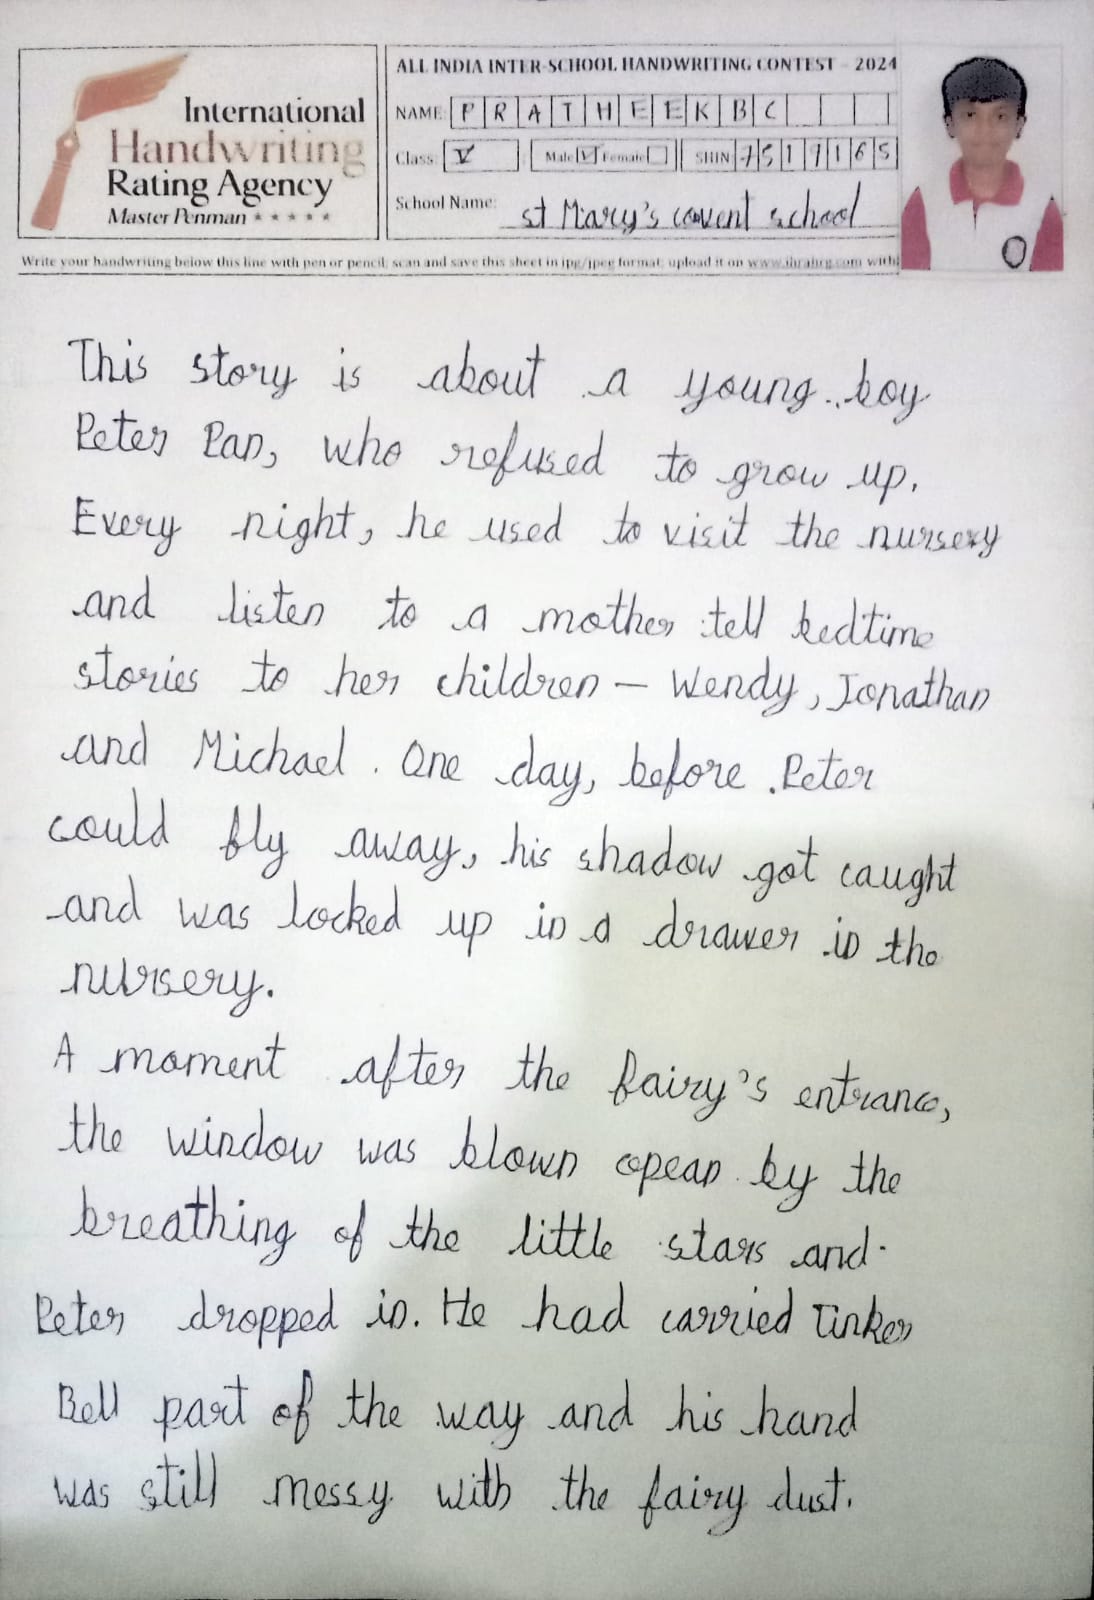 International
Handwriting
Rating Agency
Master Penman ★ ★ ★ ★ ★
ALL INDIA INTER-SCHOOL HANDWRITING CONTEST - 2024
NAME: PRATHEEK B C
Class: V Male ✓ Female SHIN 7519165
School Name: st Mary's covent school
Write your handwriting below this line with pen or pencil; scan and save this sheet in jpg/jpeg format; upload it on www.ihrahrg.com with
This story is about a young boy
Peter Pan, who refused to grow up.
Every night, he used to visit the nursery
and listen to a mother tell bedtime
stories to her children — Wendy, Jonathan
and Michael. One day, before Peter
could fly away, his shadow got caught
and was locked up in a drawer in the
nursery.
A moment after the fairy's entrance,
the window was blown opean by the
breathing of the little stars and
Peter dropped in. He had carried Tinker
Bell part of the way and his hand
was still messy with the fairy dust.